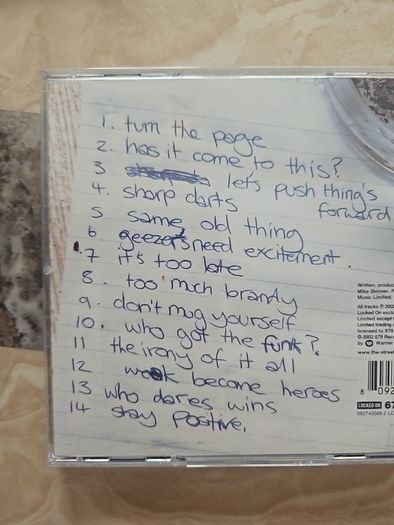 1. turn the page
2. has it come to this?
3 let's push thing's
forward
4. sharp darts
5 same old thing
6 geezers need excitement.
7 it's too late
8. too much brandy
9. don't mug yourself
10. who got the funk?
11 the irony of it all
12 weak become heroes
13 who dares wins
14 stay positive.
Written, produc
Mike Skinner.
Music Limited,
All tracks ℗ 200
Locked On exclus
Limited except
Limited trading
licensed to 679
© 2002 679 Rec
by Warner
www.the-street
8 092
LOCKED ON 67